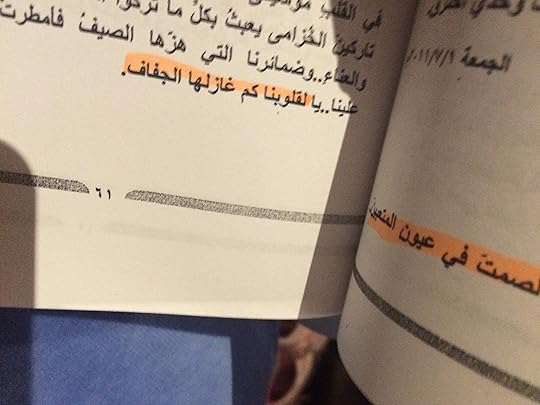 في القلب
تاركين الخُزامى يعبثُ بكلِّ ما تركوا
والعناء..وضمائرنا التي هزّها الصيفُ فأمطرت
علينا..يا لقلوبنا كم غازلها الجفاف.
٦١
وحدي
الجمعة ٢٠١١/٧/١
لصمتَ في عيون المتعبين